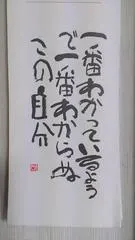 一番わかっているよう
で一番わからぬ
この自分